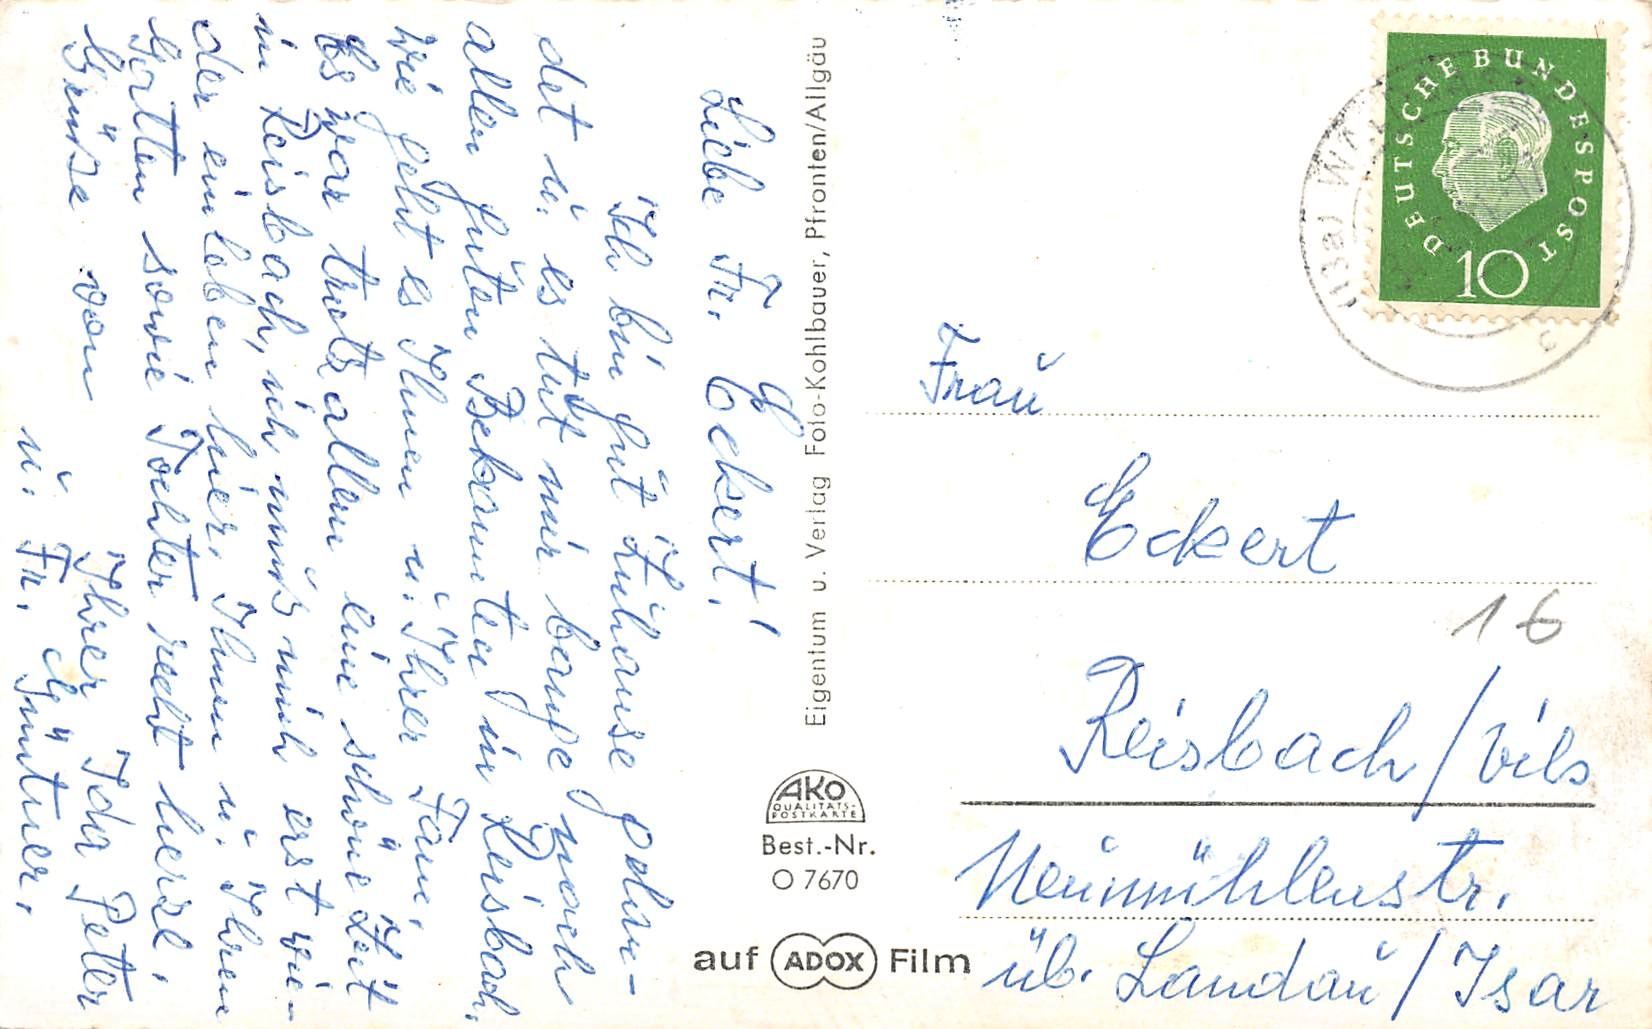 Liebe Fr. Eckert!
Ich bin gut Zuhause gelan-
det u. es tut mir bange nach
allen guten Bekannten in Reisbach.
Wie geht es Ihnen u. Ihrer Fam.
Es war trotz allem eine schöne Zeit
in Reisbach, ich muß mich erst wie-
der einleben hier. Ihnen u. Ihren
Gatten sowie Tochter recht herzl.
Grüße von
Ihrer Ida Peter
u. Fr. Güntner.
Eigentum u. Verlag Foto-Kohlbauer, Pfronten/Allgäu
AKO
QUALITÄTS-
POSTKARTE
Best.-Nr.
O 7670
auf ADOX Film
DEUTSCHE BUNDESPOST
10
(13a)
Frau
Eckert
16
Reisbach/Vils
Neumühlenstr.
üb. Landau/Isar